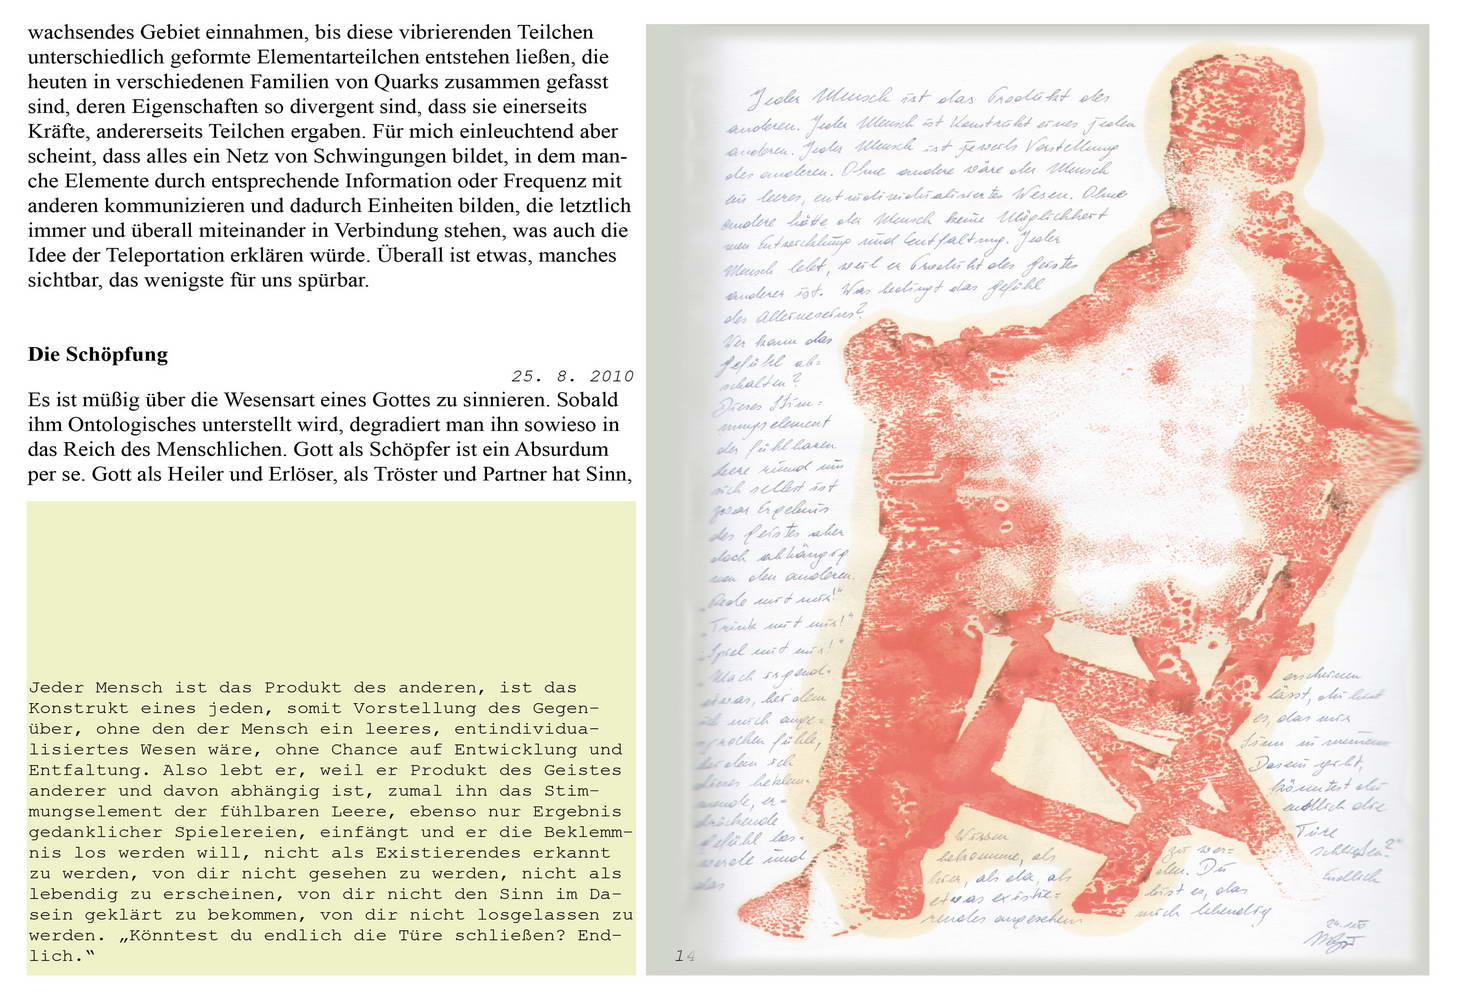 wachsendes Gebiet einnahmen, bis diese vibrierenden Teilchen
unterschiedlich geformte Elementarteilchen entstehen ließen, die
heuten in verschiedenen Familien von Quarks zusammen gefasst
sind, deren Eigenschaften so divergent sind, dass sie einerseits
Kräfte, andererseits Teilchen ergaben. Für mich einleuchtend aber
scheint, dass alles ein Netz von Schwingungen bildet, in dem man-
che Elemente durch entsprechende Information oder Frequenz mit
anderen kommunizieren und dadurch Einheiten bilden, die letztlich
immer und überall miteinander in Verbindung stehen, was auch die
Idee der Teleportation erklären würde. Überall ist etwas, manches
sichtbar, das wenigste für uns spürbar.
Die Schöpfung
25. 8. 2010
Es ist müßig über die Wesensart eines Gottes zu sinnieren. Sobald
ihm Ontologisches unterstellt wird, degradiert man ihn sowieso in
das Reich des Menschlichen. Gott als Schöpfer ist ein Absurdum
per se. Gott als Heiler und Erlöser, als Tröster und Partner hat Sinn,
Jeder Mensch ist das Produkt des anderen, ist das
Konstrukt eines jeden, somit Vorstellung des Gegen-
über, ohne den der Mensch ein leeres, entindividua-
lisiertes Wesen wäre, ohne Chance auf Entwicklung und
Entfaltung. Also lebt er, weil er Produkt des Geistes
anderer und davon abhängig ist, zumal ihn das Stim-
mungselement der fühlbaren Leere, ebenso nur Ergebnis
gedanklicher Spielereien, einfängt und er die Beklemm-
nis los werden will, nicht als Existierendes erkannt
zu werden, von dir nicht gesehen zu werden, nicht als
lebendig zu erscheinen, von dir nicht den Sinn im Da-
sein geklärt zu bekommen, von dir nicht losgelassen zu
werden. „Könntest du endlich die Türe schließen? End-
lich.“
Jeder Mensch ist das Produkt des
anderen. Jeder Mensch ist Konstrukt eines jeden
anderen. Jeder Mensch ist jeweils Vorstellung
des anderen. Ohne andere wäre der Mensch
ein leeres, entindividualisiertes Wesen. Ohne
andere hätte der Mensch keine Möglichkeit
von Entwicklung und Entfaltung. Jeder
Mensch lebt, weil er Produkt des Geistes
anderer ist. Was bedingt das Gefühl
des Alleineseins?
Wer kann das
Gefühl ab-
schalten?
Dieses Stim-
mungselement
der fühlbaren
Leere rund um
sich selbst ist
zwar Ergebnis
des Geistes aber
doch abhängig
von den anderen.
„Rede mit mir!“
„Trink mit mir!“
„Spiel mit mir!“
Mach irgend-
etwas, bei dem
ich mich ange-
sprochen fühle,
bei dem ich
dieses beklem-
mende, er-
drückende
Gefühl los-
werde und
das
Wissen
bekomme, als
hier, als da, als
etwas existie-
rendes angesehen
zu wer-
den. Du
bist es, das
mich lebendig
erscheinen
lässt, du bist
es, das mir
Sinn in meinem
Dasein gibt,
könntest du
endlich die
Türe
schließen?“
Endlich
14